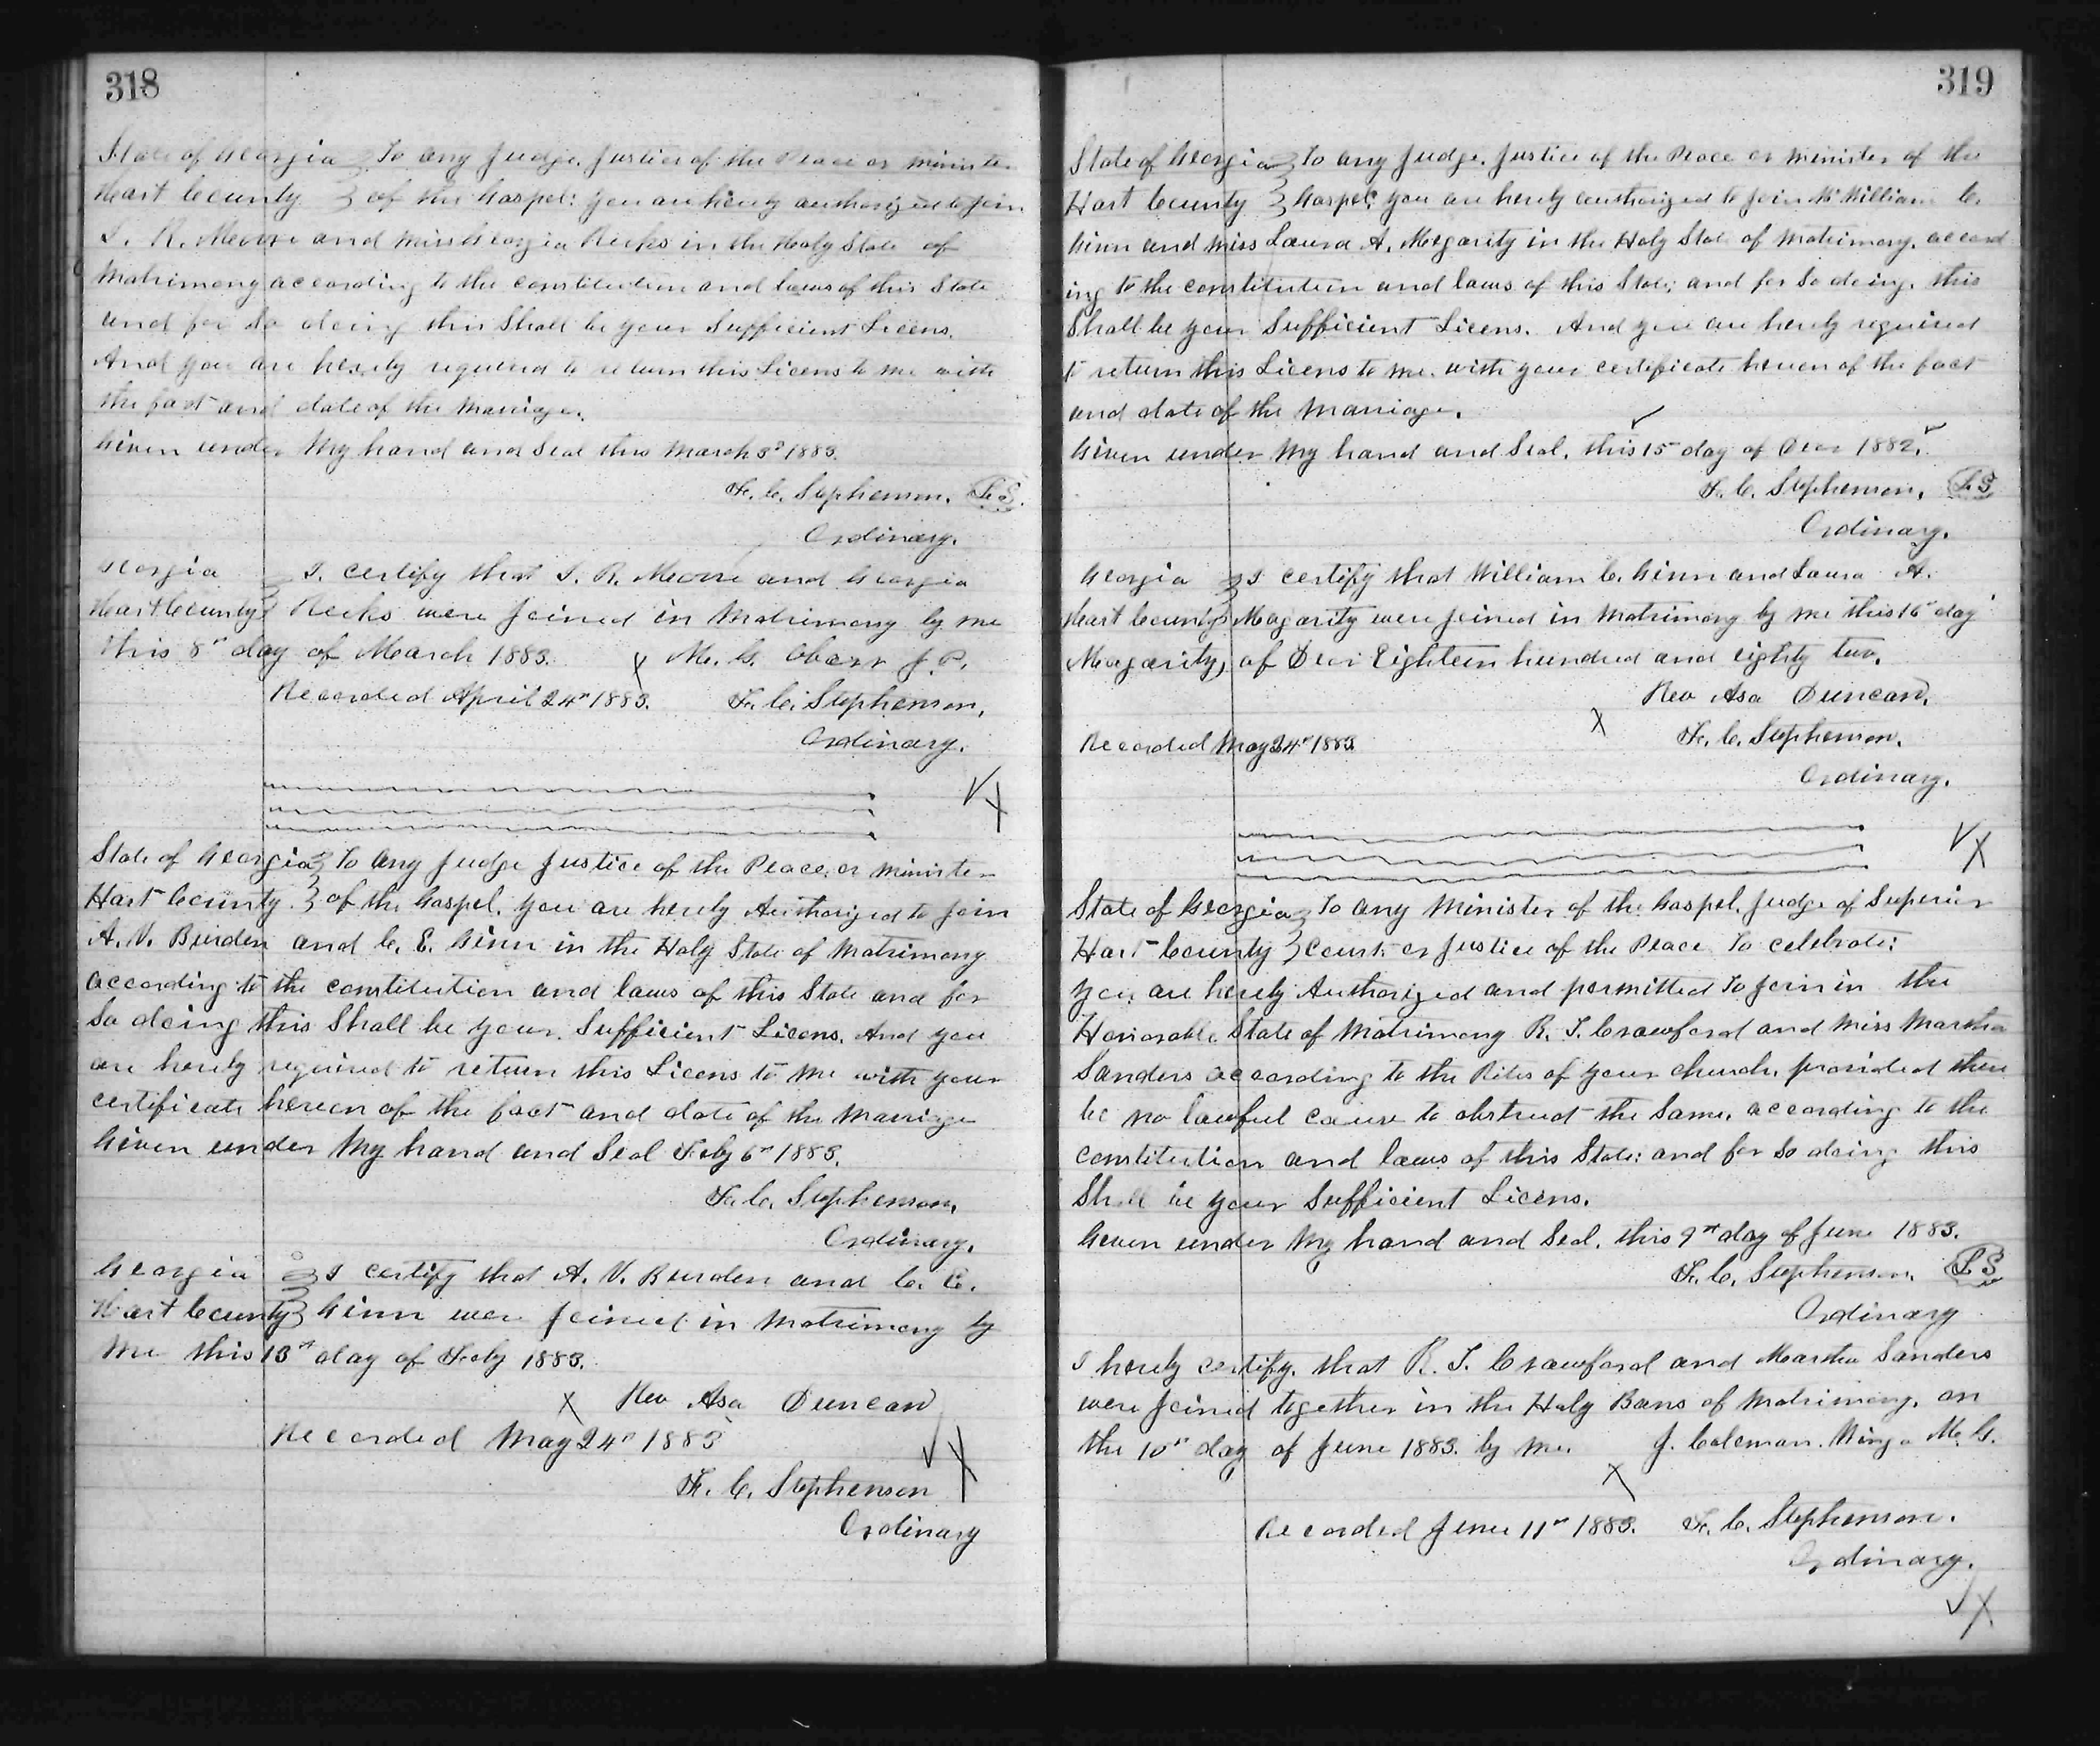 318
State of Georgia To any Judge, Justice of the Peace or minister
Hart County of the Gospel: you are hereby authorized to join
R. Moore and miss Georgia in the Holy State of
Matrimony according to the constitution and laws of this State
and for So doing this Shall be your Sufficient Licens.
And you are hereby required to return this Licens to me with
the fact and date of the Marriage.
Given under My hand and Seal this March 3d 1883.
F. C. Stephenson, L.S.
Ordinary.
Georgia I. certify that R. Moore and Georgia
Hart County were Joined in Matrimony by me
this 8th day of March 1883. X M. G. Obarr J. P.
Recorded April 24th 1883. F. C. Stephenson,
Ordinary.
State of Georgia To any Judge Justice of the Peace, or minister
Hart County. of the Gospel, you are hereby Authorized to Join
A. V. Burden and C. E. Ginn in the Holy State of Matrimony
according to the constitution and laws of this State and for
So doing this Shall be your Sufficient Licens. And you
are hereby required to return this Licens to me with your
certificate hereon of the fact and date of the Marriage
Given under My hand and Seal Feby 6th 1883.
F. C. Stephenson,
Ordinary.
Georgia I certify that A. V. Burden and C. E.
Hart County Ginn were Joined in Matrimony by
Me this 13th day of Feby 1883.
X Rev Asa Duncan
Recorded May 24th 1883
F. C. Stephenson
Ordinary
319
State of Georgia To any Judge, Justice of the Peace or minister of the
Hart County Gospel, you are hereby authorized to Join Mr William C.
Ginn and miss Laura A. Megarity in the Holy State of Matrimony, accord
ing to the constitution and laws of this State; and for So doing, this
Shall be your Sufficient Licens. And you are hereby required
to return this Licens to me. with your certificate hereon of the fact
and date of the Marriage.
Given under My hand and Seal, this 15 day of Decr 1882.
F. C. Stephenson, L.S
Ordinary.
Georgia I certify that William C. Ginn and Laura A.
Hart County Magarity were Joined in Matrimony by me this 16th day
Megarity, of Decr Eighteen hundred and eighty two.
Rev Asa Duncan.
X F. C. Stephenson.
Recorded May 24th 1883
Ordinary.
State of Georgia To any Minister of the Gospel, Judge of Superior
Hart County Court or Justice of the Peace To celebrate:
You are hereby Authorized and permitted To Join in the
Honorable State of Matrimony R. T. Crawford and Miss Martha
Sanders according to the Rites of your church, provided there
be no lawful cause to obstruct the Same, according to the
constitution and laws of this State: and for So doing this
Shall be your Sufficient Licens.
Given under My hand and Seal, this 9th day of June 1883.
F. C. Stephenson, L.S
Ordinary
I hereby certify, that R. T. Crawford and Martha Sanders
were Joined together in the Holy Bans of Matrimony, on
the 10th day of June 1883. by me. J. Coleman M. G.
X
Recorded June 11th 1883. F. C. Stephenson.
Ordinary.